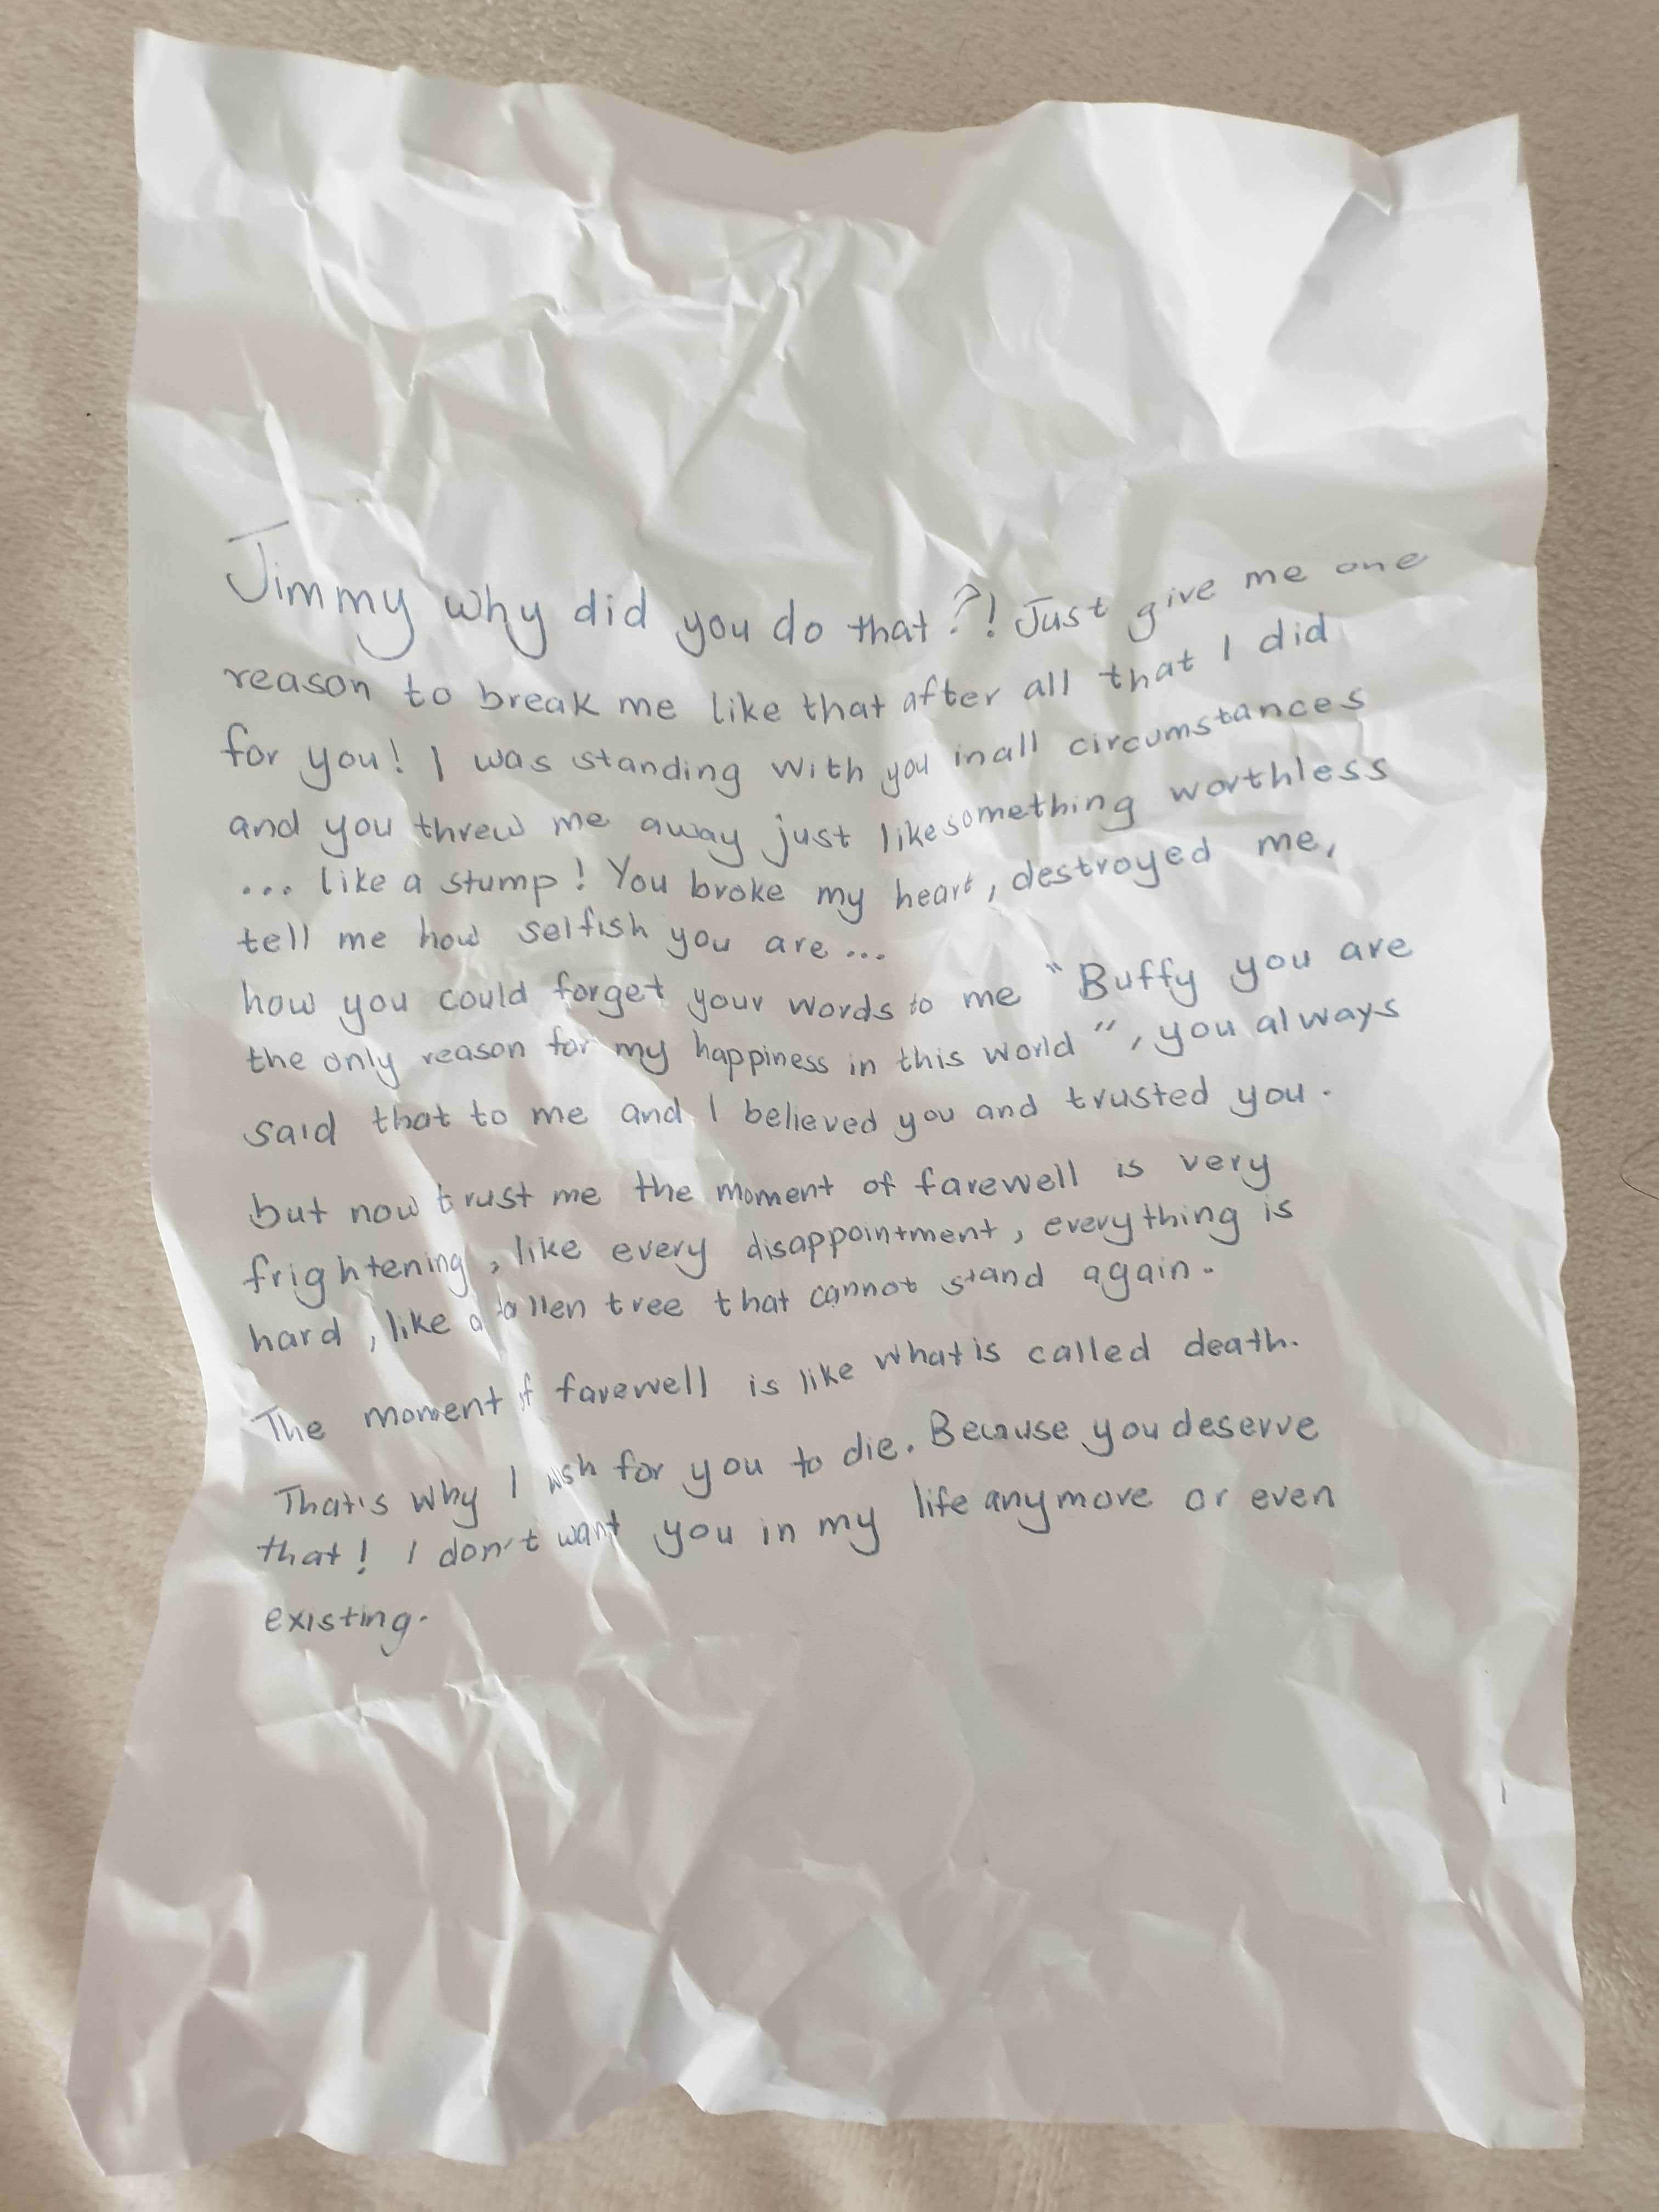 Jimmy why did you do that?! Just give me one
reason to break me like that after all that I did
for you! I was standing with you in all circumstances
and you threw me away just like something worthless
... like a stump! You broke my heart, destroyed me,
tell me how selfish you are...
how you could forget your words to me "Buffy you are
the only reason for my happiness in this world", you always
said that to me and I believed you and trusted you.
but now trust me the moment of farewell is very
frightening, like every disappointment, everything is
hard, like a fallen tree that cannot stand again.
The moment of farewell is like what is called death.
That's why I wish for you to die. Because you deserve
that! I don't want you in my life anymore or even
existing.